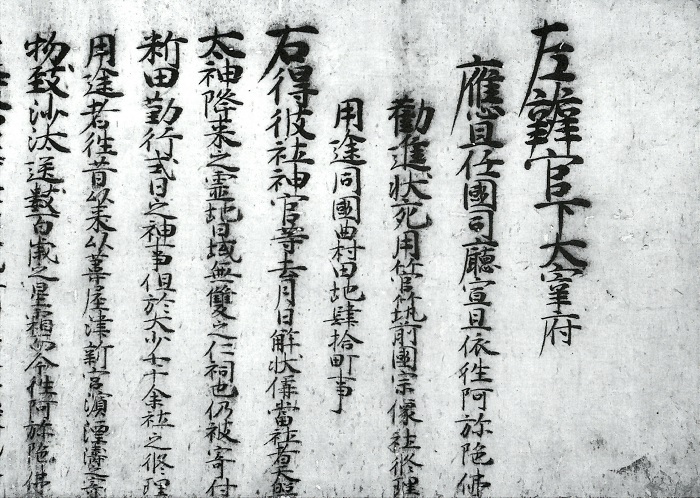 左辨官下大宰府
應且任國司廳宣且依往阿弥陀佛
勸進状宛用管筑前國宗像社修理
用途同國曲村田地肆拾町事
右得彼社神官等去月日解状偁當社者大照
太神降来之霊地日域無雙之仁祠也仍被寄付
料田勤行式日之神事但於大少七十余社之修理
用途者往昔以来以葦屋津新宮濱漂濤之寄
物致沙汰送数百歳之星霜而今往阿弥陀佛